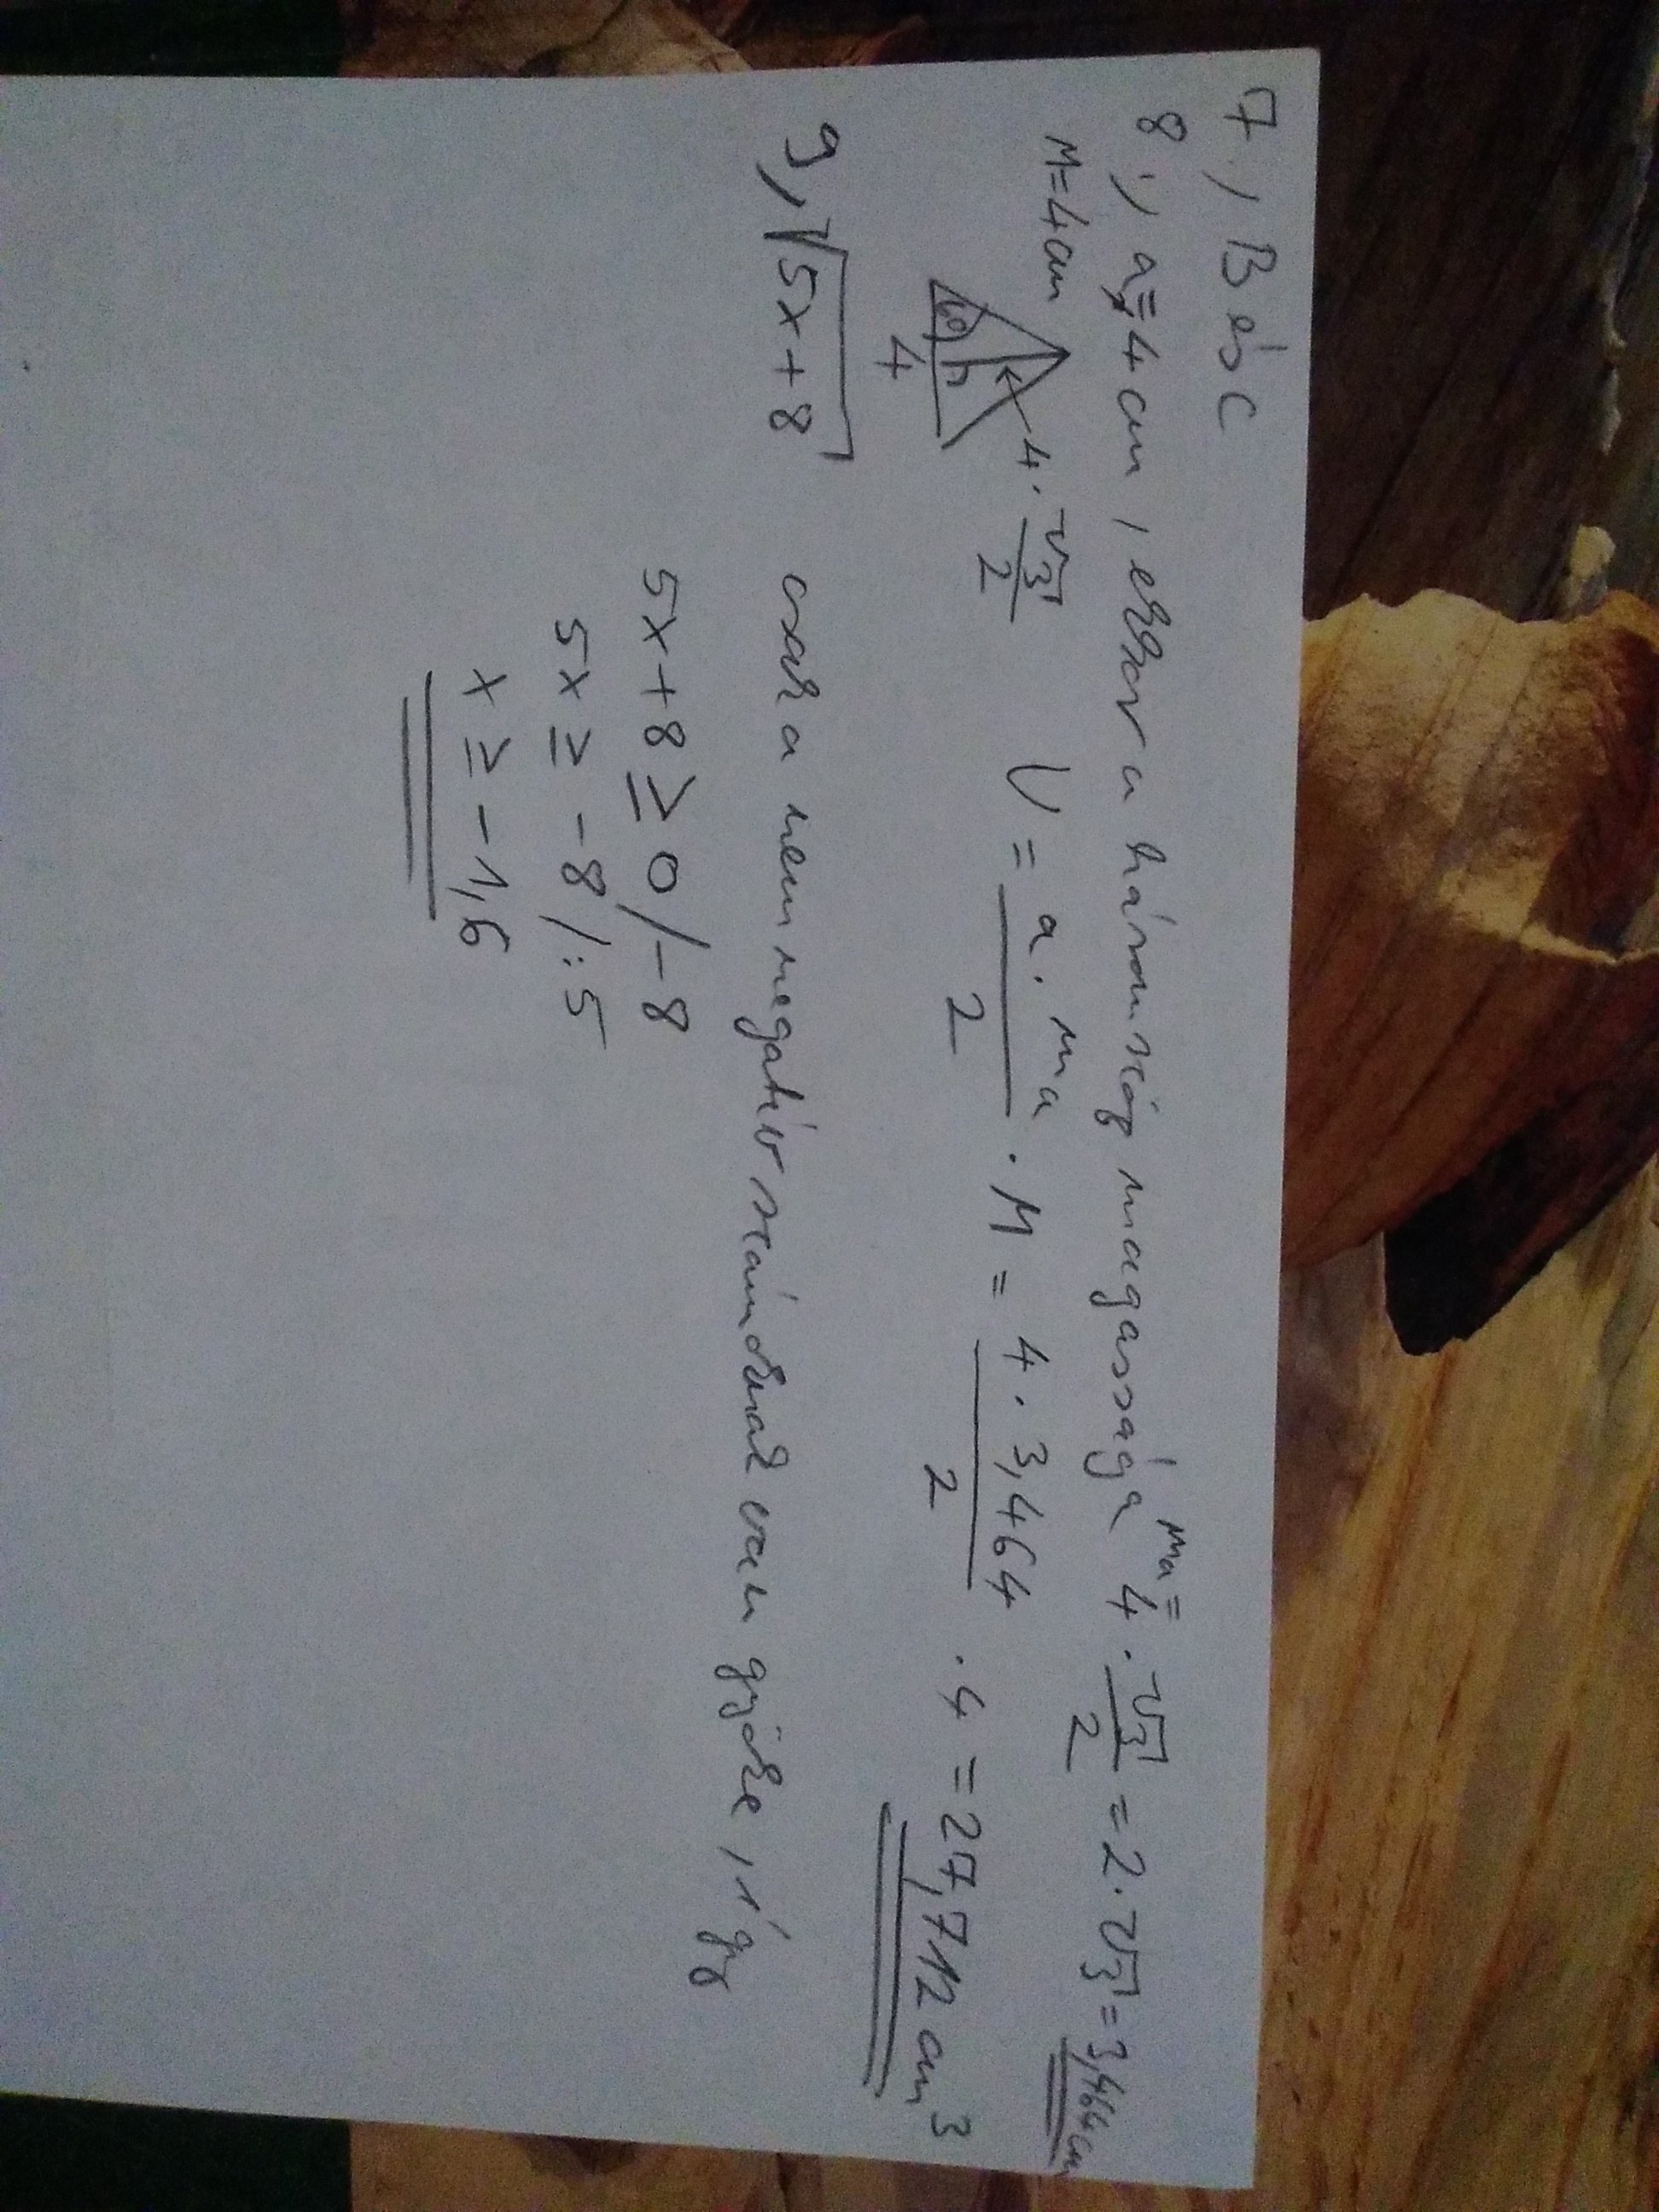 7., B és C
8., a = 4 cm, ekkor a háromszög magassága ma = 4 · √3/2 = 2 · √3 = 3,464 cm
M = 4 cm
60°
4
4 · √3/2
V = a · ma/2 · M = 4 · 3,464/2 · 4 = 27,712 cm³
9, √5x + 8 csak a nem negatív számoknak van gyöke, így
5x + 8 ≥ 0 /-8
5x ≥ -8 /:5
x ≥ -1,6